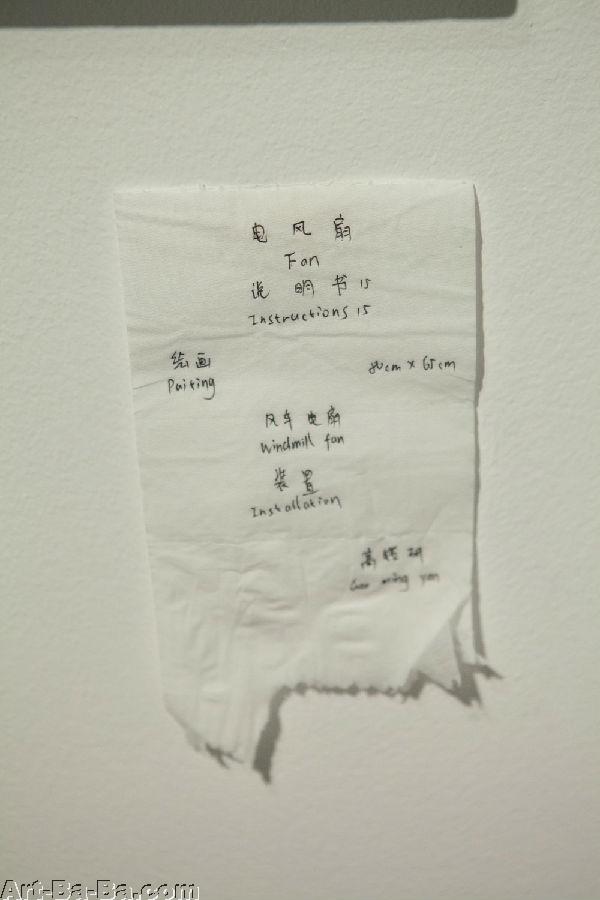 电风扇
Fan
说明书 15
Instructions 15
绘画 80cm x 65cm
Paiting
风车电扇
Windmill fan
装置
Installation
高铭研
Gao ming yan
Art-Ba-Ba.com